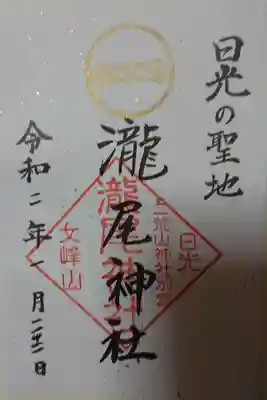 日光の聖地
日光
二荒山神社別宮
瀧尾神社
瀧尾神社
女峰山
令和二年一月